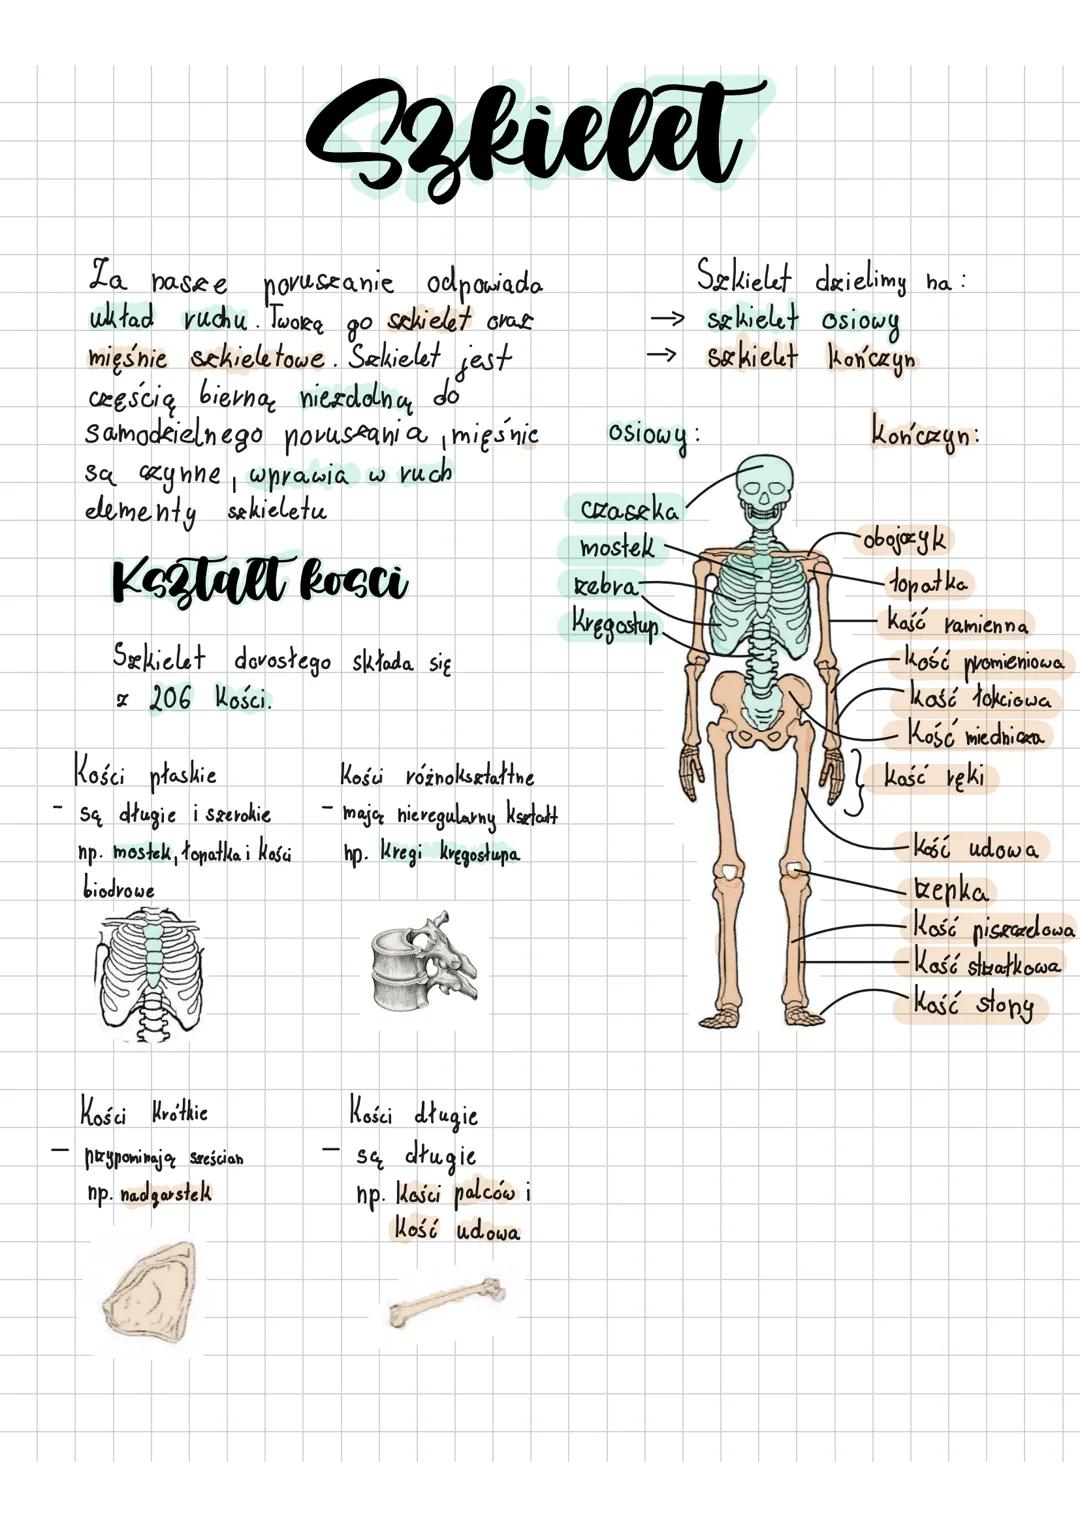 Szkielet
Za nasze poruszanie odpowiada
układ ruchu. Tworzą go szkielet oraz
mięśnie szkieletowe. Szkielet jest
częścią bierną niezdolną do
samodzielnego poruszania, mięśnie
są czynne, wprawia w ruch
elementy szkieletu
Szkielet dzielimy na:
→ szkielet osiowy
→ szkielet kończyn
osiowy:
czaszka
mostek
żebra
Kręgosłup
kończyn:
obojczyk
łopatka
kość ramienna
kość promieniowa
kość łokciowa
kość miednicza
kość ręki
kość udowa
rzepka
kość piszczelowa
kość strzałkowa
kość stopy
Kształt kości
Szkielet dorosłego składa się
z 206 kości.
Kości płaskie
- są długie i szerokie
np. mostek, łopatka i kości
biodrowe
Kości różnokształtne
- mają nieregularny kształt
np. kręgi kręgosłupa
Kości krótkie
- przypominają sześcian
np. nadgarstek
Kości długie
- są długie
np. kości palców i
kość udowa